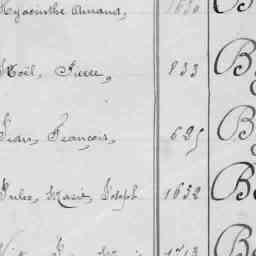 Hyacinthe Armand, 1630 B
Noël, Pierre, 833 B
Jean, François, 625 B
Jules, Marie, Joseph 1632 B
1713 B